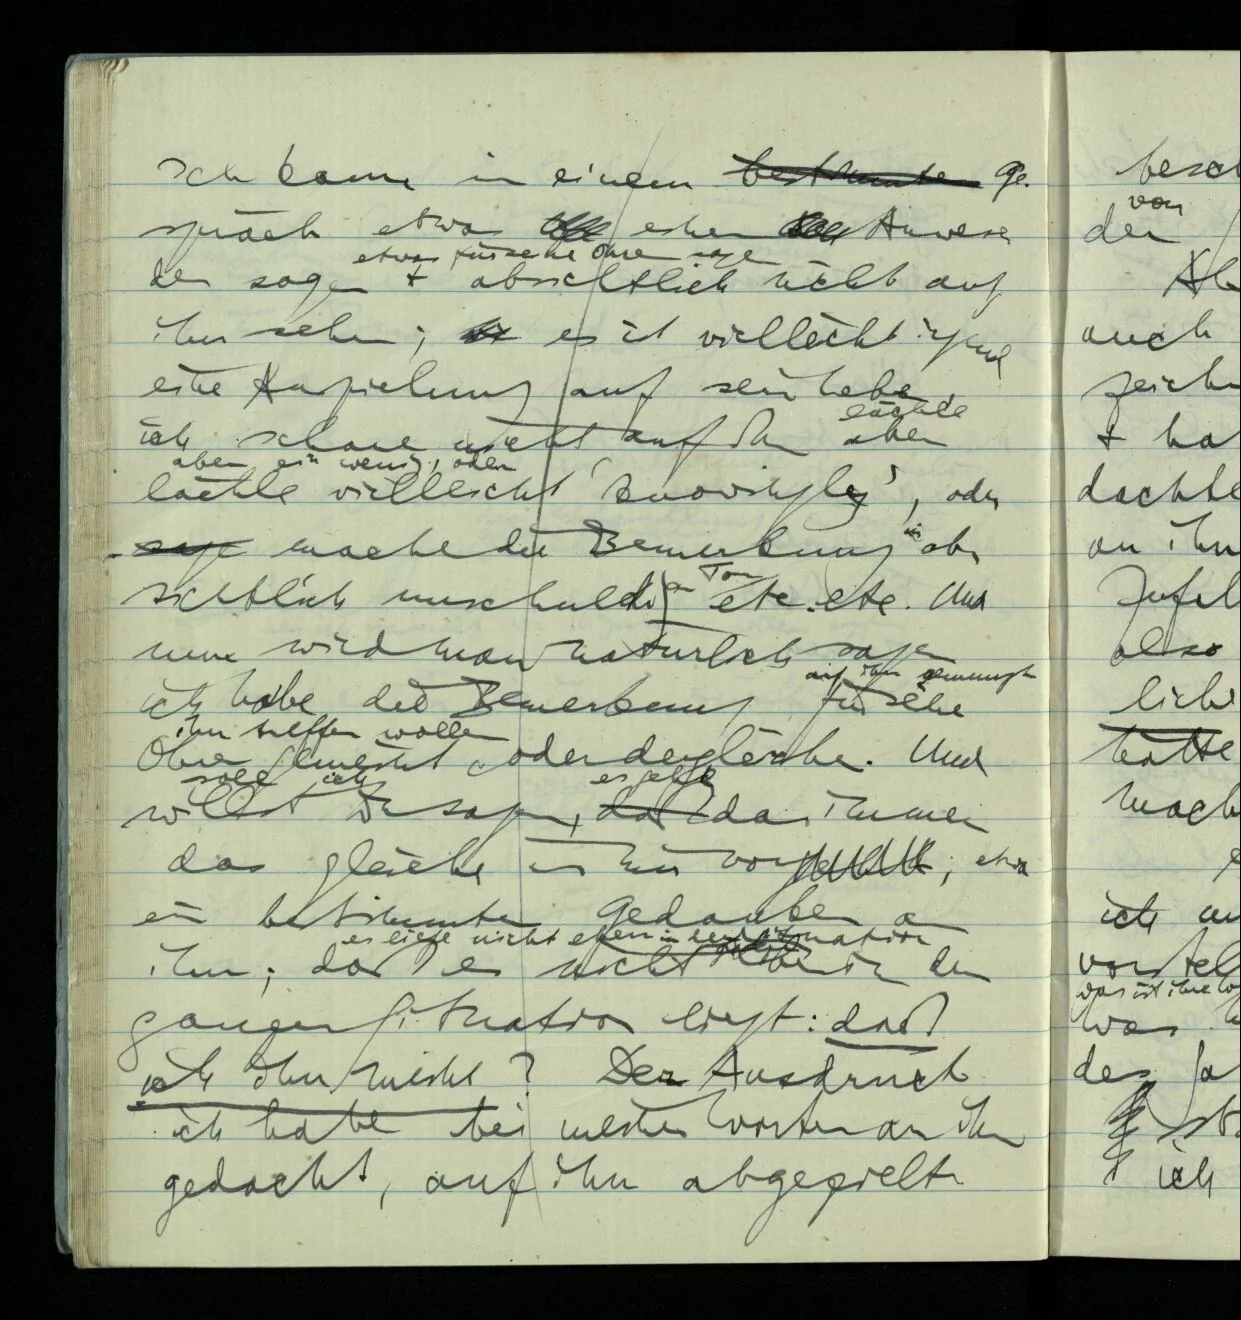 Ich kann in einem bestimmten Ge-
spräch etwas einen Anwesen
den sagen + absichtlich nicht auf
etwas für seine Ohren sagen
ihn sehen; es ist vielleicht irgend
eine Anspielung auf sein Leben
ich schaue nicht auf ihn aber
lächle
aber ein wenig, oder
lächle vielleicht 'knowingly', oder
sage mache die Bemerkung in ab
sichtlich unschuldigen Ton etc. etc. Und
nun wird man natürlich sagen
auf ihn gemünzt
ich habe die Bemerkung für seine
ihn treffen wollen
Ohren gemeint oder dergleichen. Und
soll ich es gehe
willst Du sagen, daß da immer
das gleiche in mir vor; etwa
ein bestimmter Gedanke an
es liege nicht eben in der Situation
ihn; daß es nicht in der
ganzen Situation liegt: daß
ich ihn meine? Der Ausdruck
ich habe bei meinen Worten an ihn
gedacht, auf ihn abgezielt
von
der
auch
dachte
an ihn
also
hatte
ich
was
des
ich